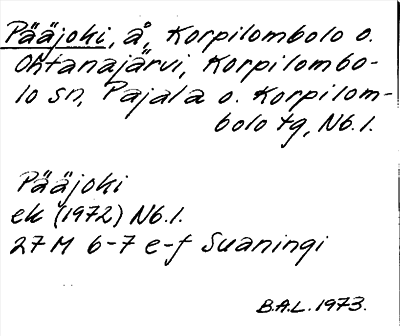 Pääjoki, å, Korpilombolo o.
Ohtanajärvi, Korpilombo-
lo sn, Pajala o. Korpilom-
bolo tg, Nb.l.
Pääjoki
ek (1972) Nb.l.
27M 6-7 e-f Suaningi
B.A.L. 1973.